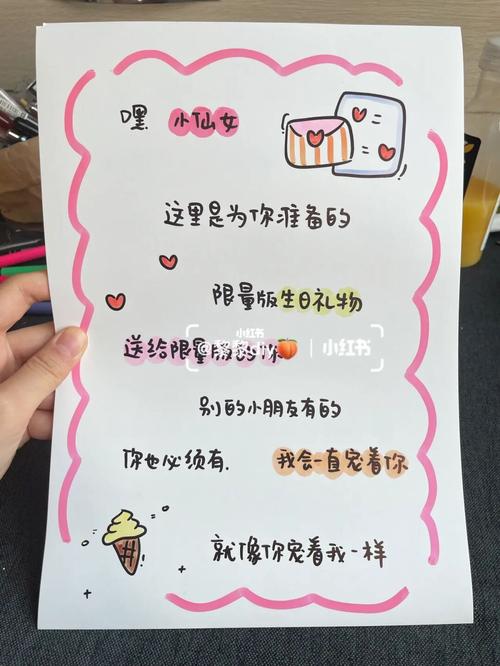 嘿 小仙女
这里是为你准备的
限量版生日礼物
小红书
送给限量版的你
@黎黎diy🍑 小红书
别的小朋友有的
你也必须有. 我会一直宠着你
就像你宠着我一样